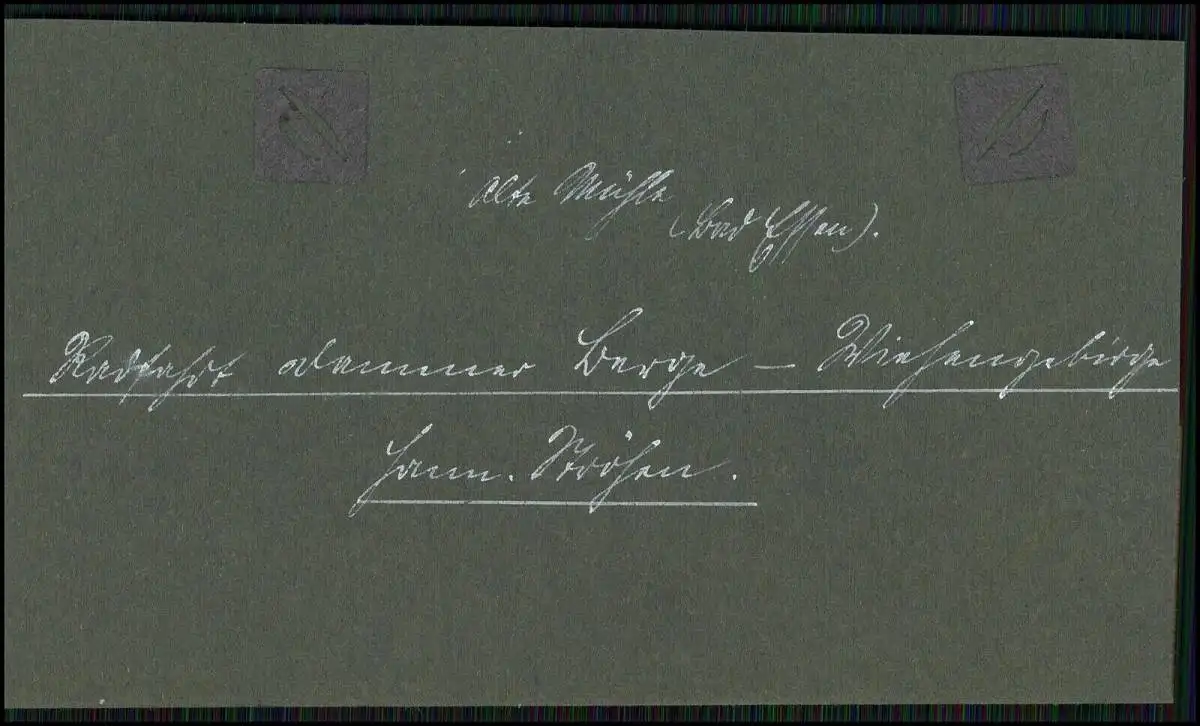 Alte Mühle
(Bad Essen).
Radfahrt Dammer Berge – Wiehengebirge
Hann. Ströhen.